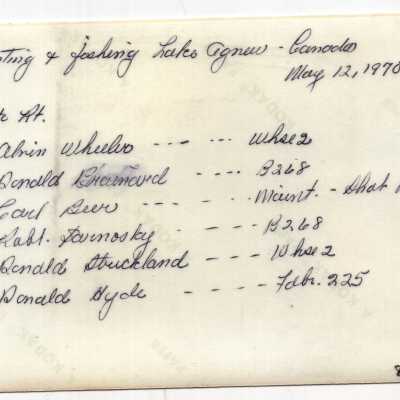 ting & fishing Lake Agnew - Canada
May 12, 1970
Rt.
Alvin Wheeler --- --- Whse 2
Donald Brainard ---- B268
Carl Beer --- --- Maint. - Shot
Robt. Sarnosky ---- B268
Donald Strickland ---- Whse 2
Donald Hyde ---- Fdbr. 225
8
KODAK